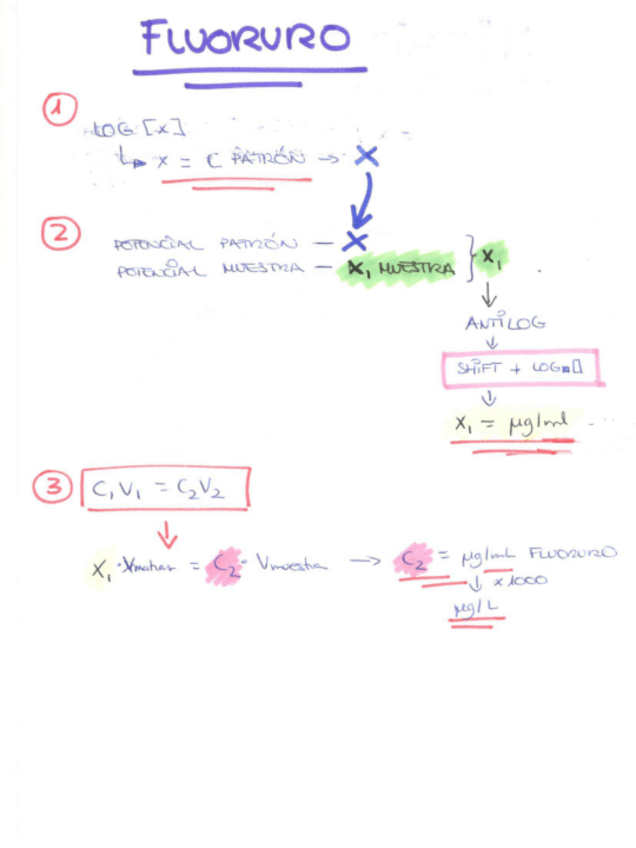 FLUORURO
1
LOG [x]
↳ x = C PATRÓN → X
2
POTENCIAL PATRÓN — X
POTENCIAL MUESTRA — X₁ MUESTRA } X₁
↓
ANTILOG
↓
SHIFT + LOG■▯
↓
X₁ = µg/ml
3 C₁V₁ = C₂V₂
↓
X₁ · = C₂ · Vmuestra → C₂ = µg/mL FLUORURO
↓ x 1000
µg/L